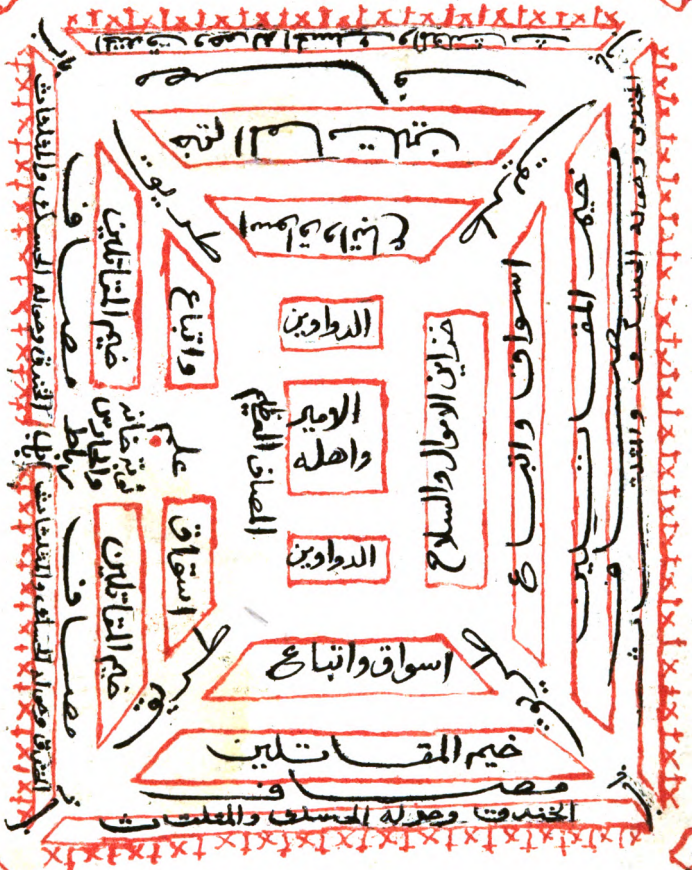 الخندق وحوله الحسك والمثلثات
مصاف
خيم المقاتلين
اسواق واتباع
طريق
طريق
الدواوين
الامير
واهله
الدواوين
المصاف العظيم
خزاين الاموال والسلاح
اسواق واتباع
خيم المقاتلين
مصاف
الخندق وحوله الحسك والمثلثات
واتباع
خيم المقاتلين
مصاف
الخندق وحوله الحسك والمثلثات
علم
والحارس
اسواق
خيم المقاتلين
مصاف
الخندق وحوله الحسك والمثلثات
طريق
طريق
اسواق واتباع
خيم المقاتلين
مصاف
الخندق وحوله الحسك والمثلثات